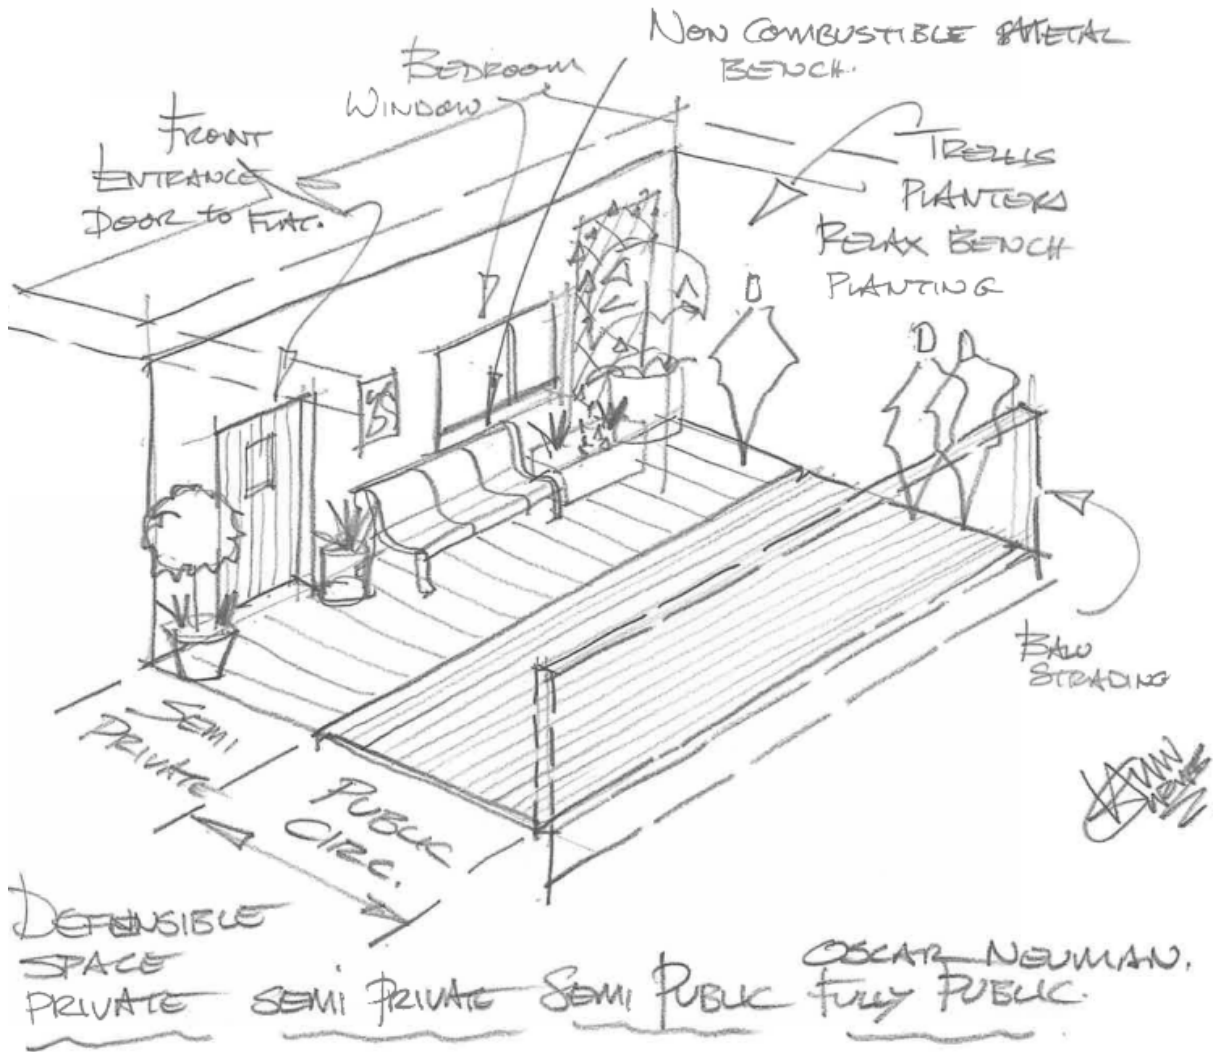 NON COMBUSTIBLE METAL
BENCH.
BEDROOM
WINDOW
FRONT
ENTRANCE
DOOR to FLAT.
TRELLIS
PLANTERS
RELAX BENCH
PLANTING
BALU
STRADING
SEMI
PRIVATE
PUBLIC
CIRC.
DEFENSIBLE
SPACE
OSCAR NEWMAN.
PRIVATE SEMI PRIVATE SEMI PUBLIC FULLY PUBLIC.